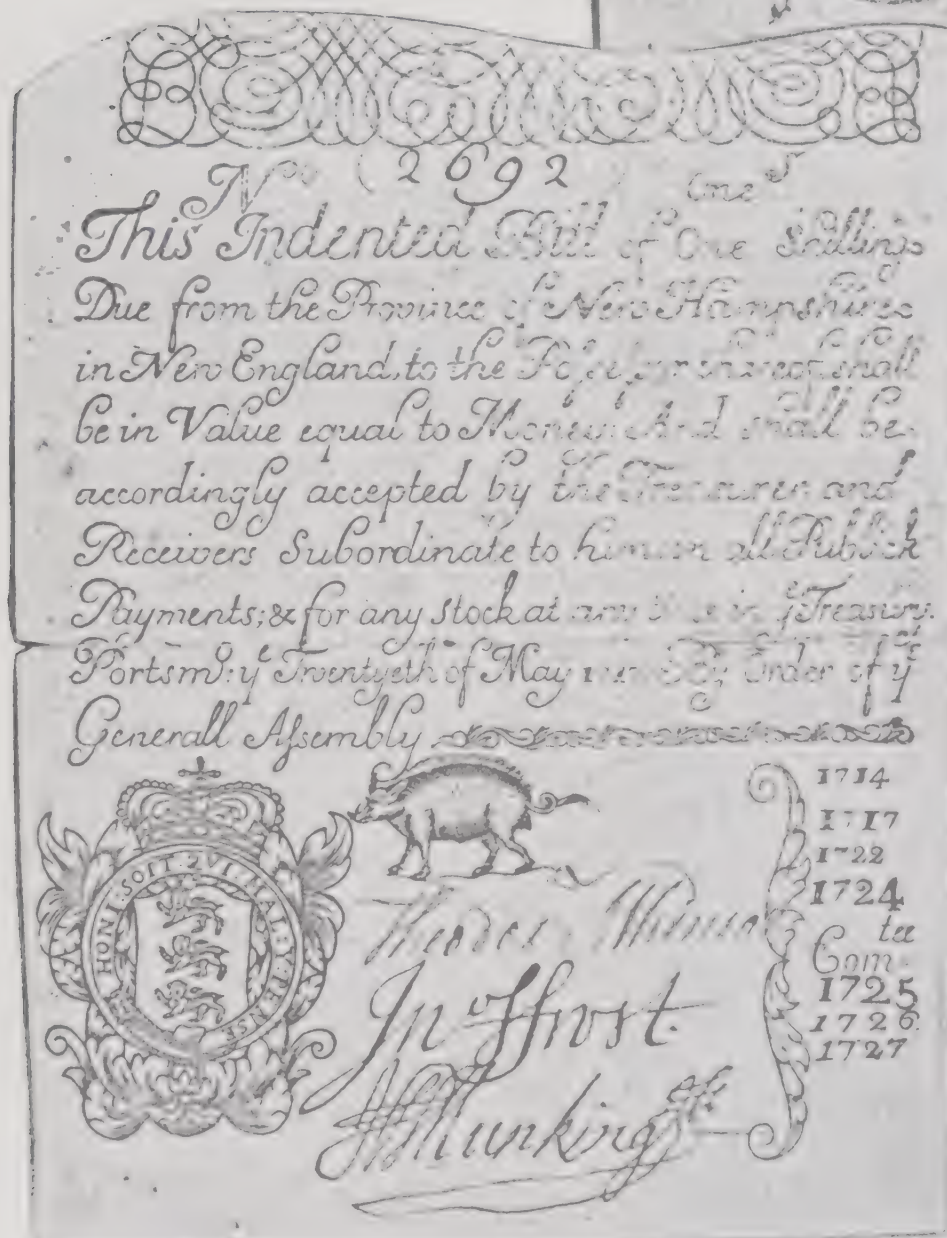 No (2692) One s
This Indented Bill of One Shilling
Due from the Province of New Hampshire
in New England, to the Possessor thereof shall
be in Value equal to Money And shall be
accordingly accepted by the Treasurer and
Receivers Subordinate to him in all Publick
Payments; & for any Stock at any time in ye Treasury.
Portsmo: ye Twentyeth of May By Order of ye
Generall Assembly
HONI SOIT QVI MAL Y PENSE
Jn Ffrost.
Munking
1714
1717
1722
1724
Com tee
1725
1726
1727